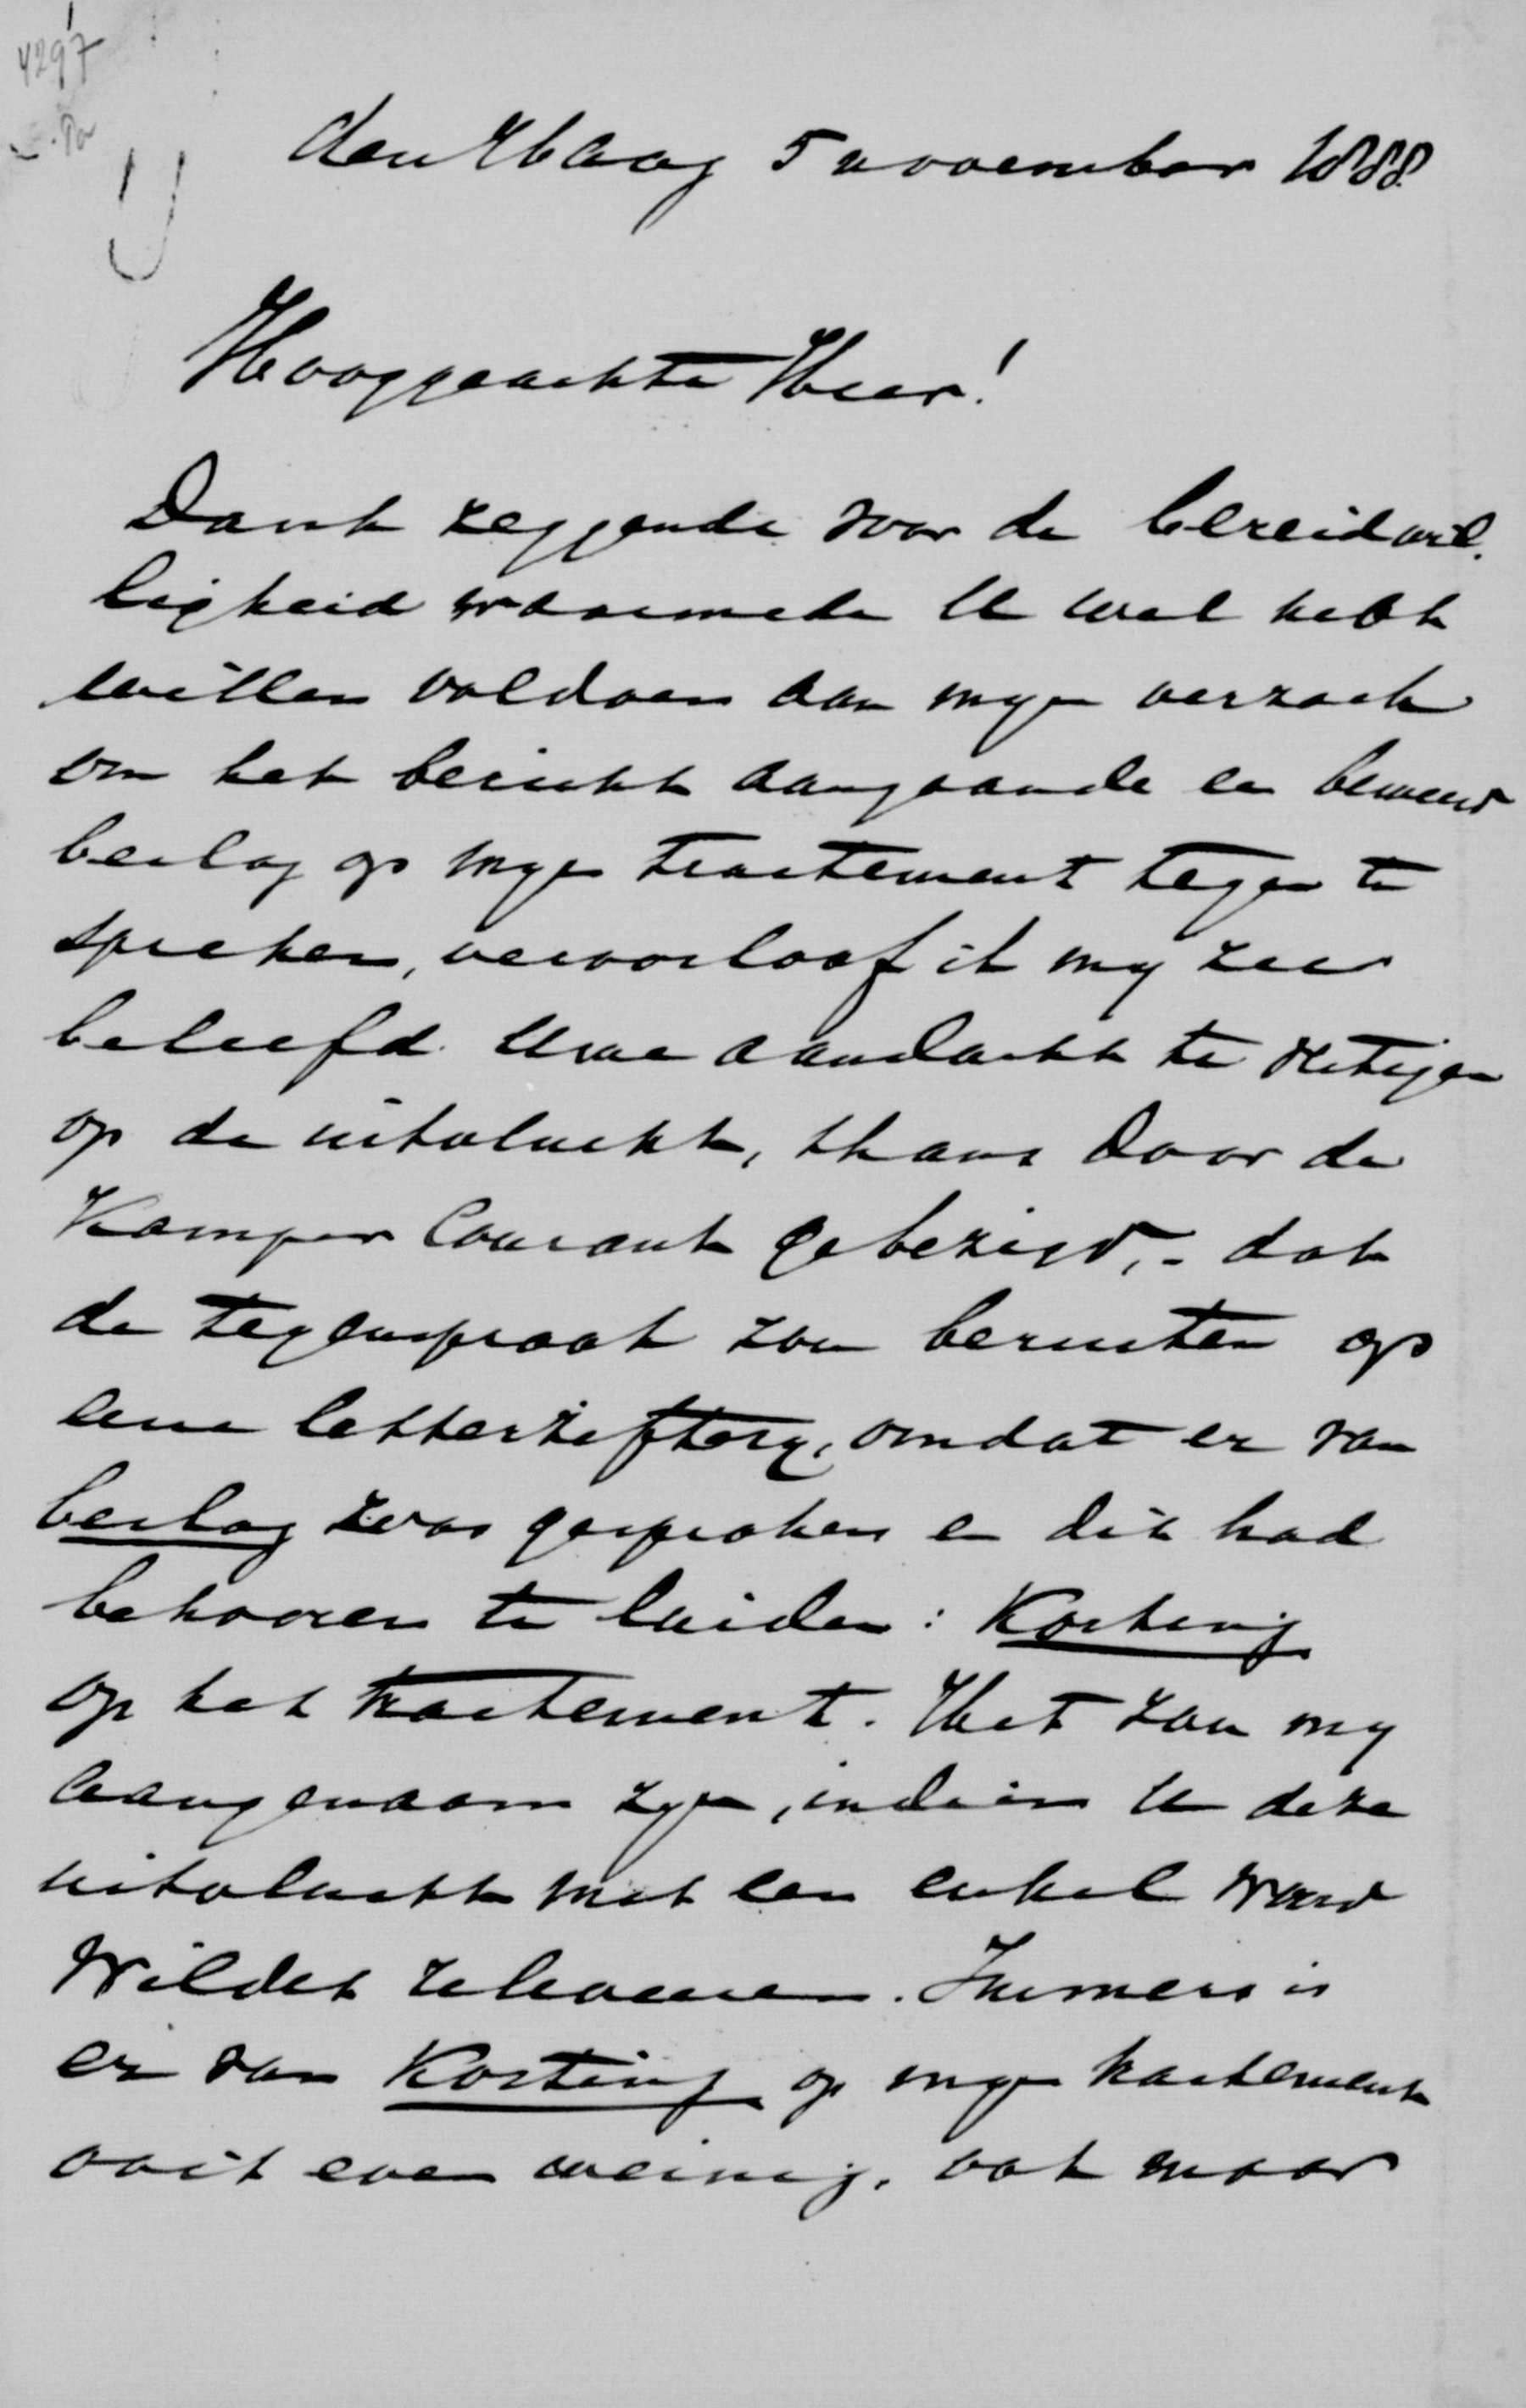 4297
den Haag 5 november 1888.
Hooggeachte Heer!
Dank zeggende voor de bereidwil-
ligheid waarmede U wel hebt
willen voldoen aan myn verzoek
om het bericht aangaande en beweerd
beslag op myn tractement tegen te
spreken, veroorloof ik my zeer
beleefd Uwe aandacht te vestigen
op de uitvlucht, thans door de
Kamper Courant gebezigd, - dat
de tegenspraak zou berusten op
eene letterzifterij, omdat er van
beslag was gesproken en dit had
behooren te luiden: Korting
op het tractement. Het zou my
aangenaam zyn, indien U deze
uitvlucht met een enkel woord
wildet releveeren. Immers is
er van Korting op myn tractement
ooit even weinig, ook maar